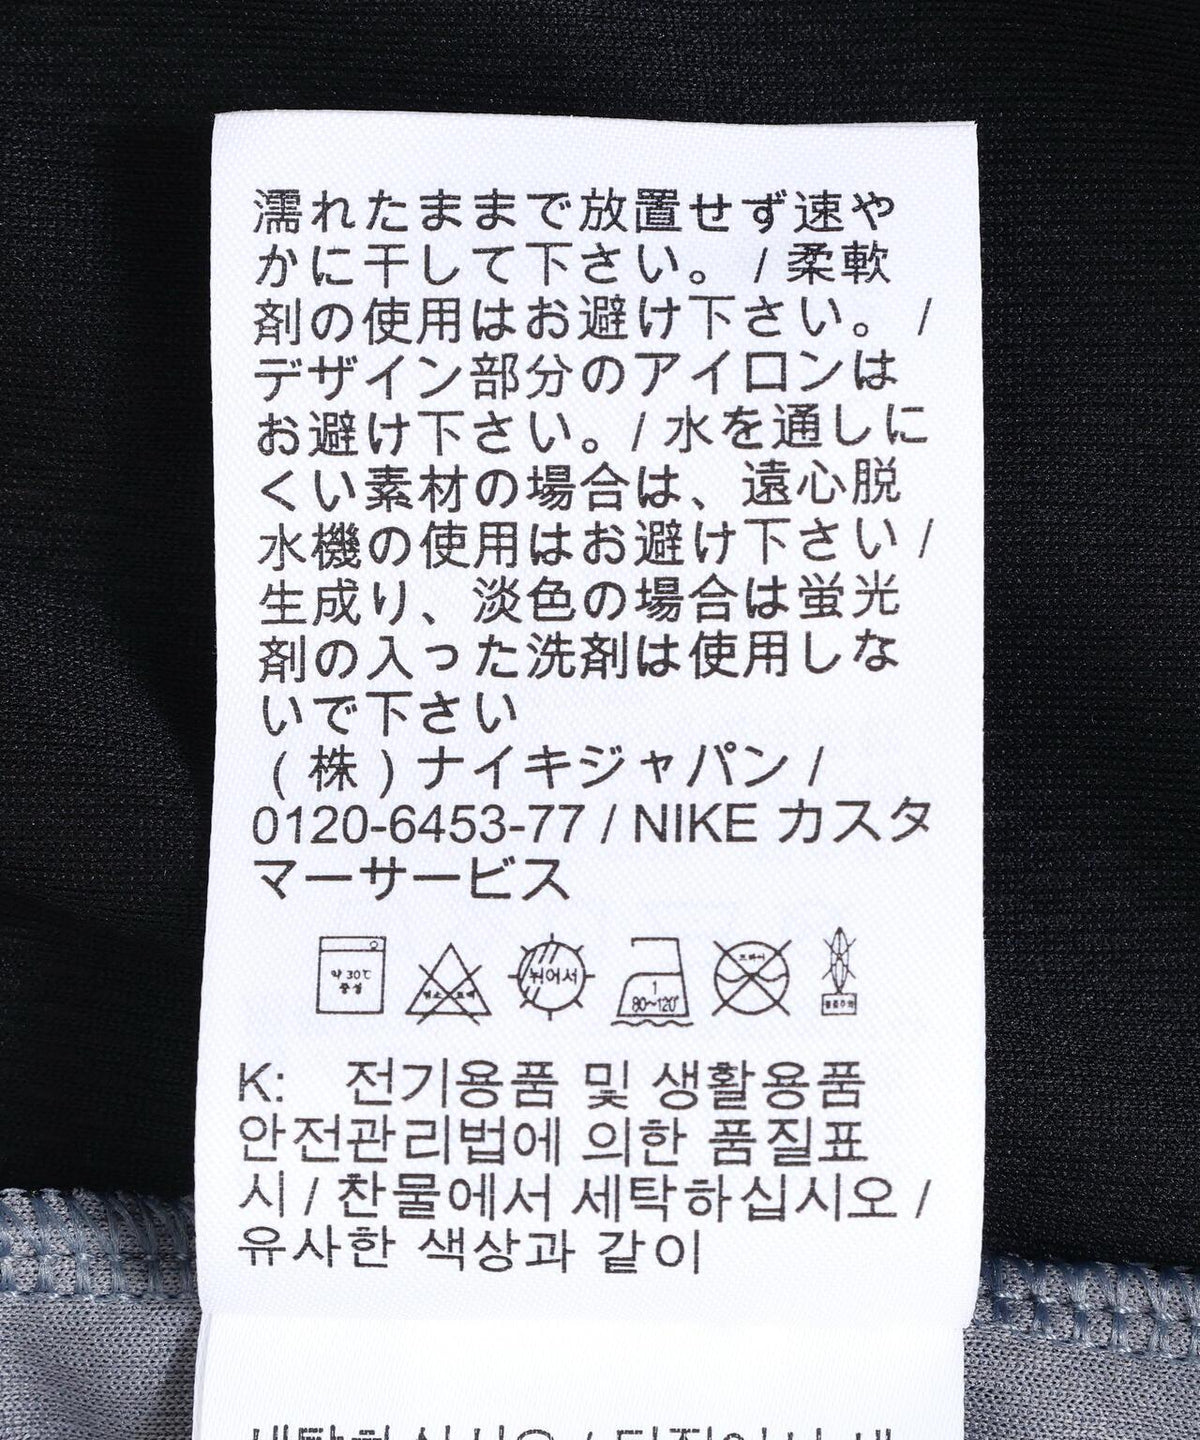 濡れたままで放置せず速や
かに干して下さい。 / 柔軟
剤の使用はお避け下さい。 /
デザイン部分のアイロンは
お避け下さい。/ 水を通しに
くい素材の場合は、遠心脱
水機の使用はお避け下さい /
生成り、淡色の場合は蛍光
剤の入った洗剤は使用しな
いで下さい
(株) ナイキジャパン /
0120-6453-77 / NIKE カスタ
マーサービス
약 30℃
중성
뉘어서
1
80~120°
드라이
K: 전기용품 및 생활용품
안전관리법에 의한 품질표
시 / 찬물에서 세탁하십시오 /
유사한 색상과 같이